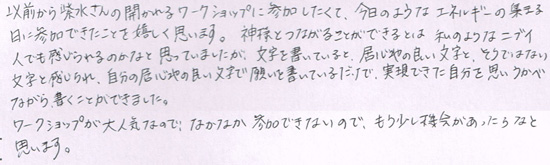 以前から紫水さんの開かれるワークショップに参加したくて、今日のようなエネルギーの集まる
日に参加できたことを嬉しく思います。 神様とつながることができるとは 私のようなニブイ
人でも感じられるのかなと思っていましたが、文字を書いていると、居心地の良い文字と、そうではない
文字と感じられ、自分の居心地の良い文字で願いを書いているだけで、実現できた自分を思いうかべ
ながら、書くことができました。
ワークショップが大人気なので、なかなか参加できないので、もう少し機会があったらなと
思います。